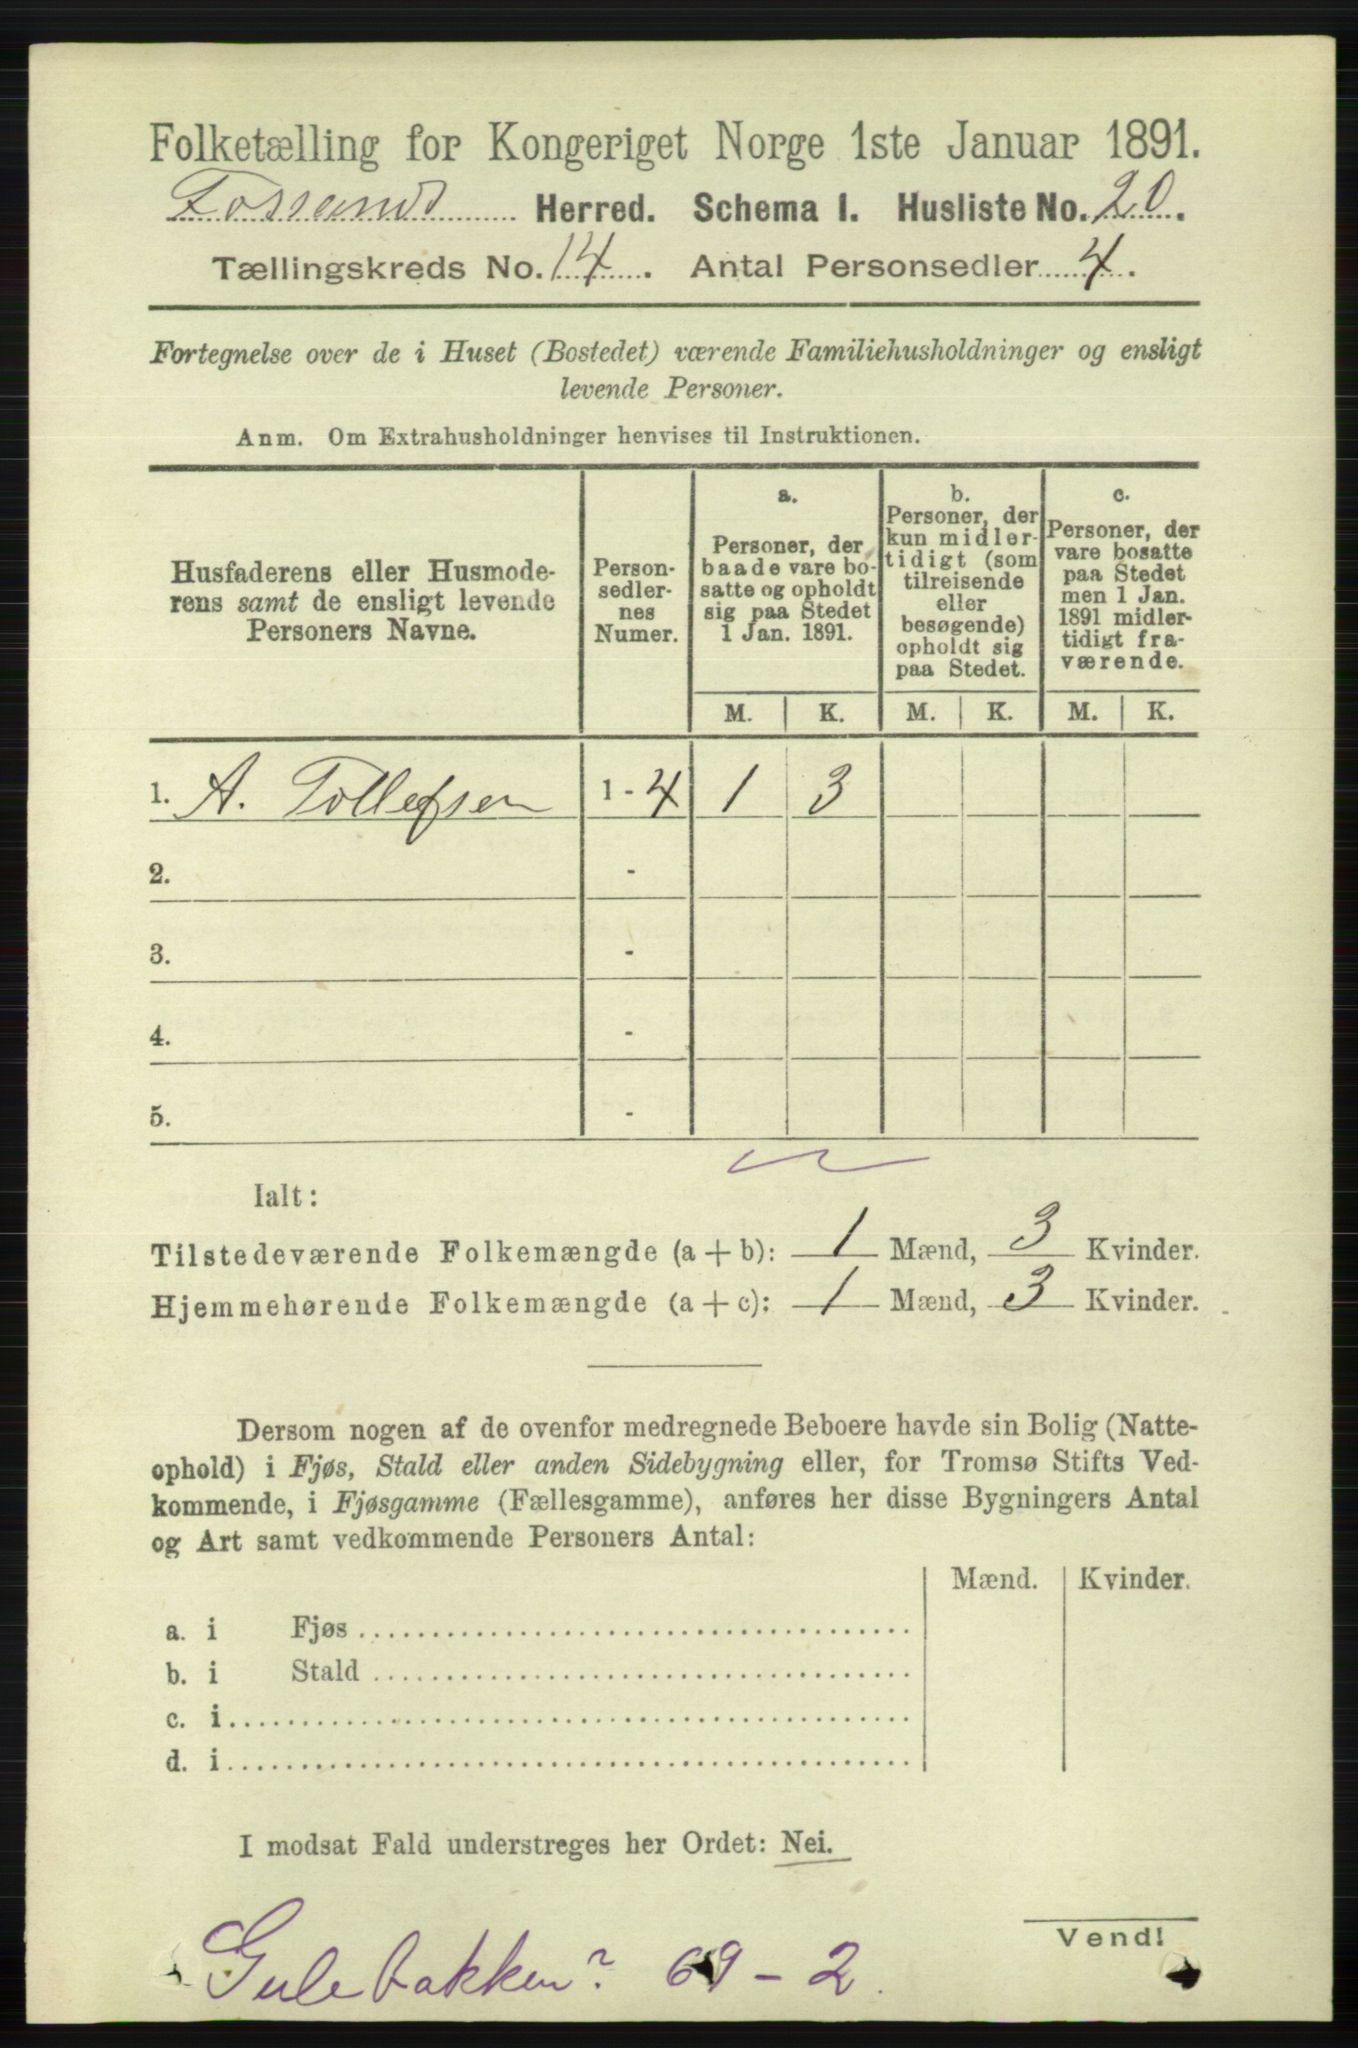 Folketælling for Kongeriget Norge 1ste Januar 1891.
Fossands Herred. Schema I. Husliste No. 20.
Tællingskreds No. 14. Antal Personsedler 4.
Fortegnelse over de i Huset (Bostedet) værende Familiehusholdninger og ensligt
levende Personer.
Anm. Om Extrahusholdninger henvises til Instruktionen.
Husfaderens eller Husmode-
rens samt de ensligt levende
Personers Navne.
Person-
sedler-
nes
Numer.
a.
Personer, der
baade vare bo-
satte og opholdt
sig paa Stedet
1 Jan. 1891.
b.
Personer, der
kun midler-
tidigt (som
tilreisende
eller
besøgende)
opholdt sig
paa Stedet.
c.
Personer, der
vare bosatte
paa Stedet
men 1 Jan.
1891 midler-
tidigt fra-
værende.
M. K. M. K. M. K.
1. A. Tollefsen 1 - 4 1 3
2. -
3. -
4. -
5. -
Ialt:
Tilstedeværende Folkemængde (a + b): 1 Mænd, 3 Kvinder.
Hjemmehørende Folkemængde (a + c): 1 Mænd, 3 Kvinder.
Dersom nogen af de ovenfor medregnede Beboere havde sin Bolig (Natte-
ophold) i Fjøs, Stald eller anden Sidebygning eller, for Tromsø Stifts Ved-
kommende, i Fjøsgamme (Fællesgamme), anføres her disse Bygningers Antal
og Art samt vedkommende Personers Antal:
Mænd. Kvinder.
a. i Fjøs
b. i Stald
c. i
d. i
I modsat Fald understreges her Ordet: Nei.
Vend!
Gulebakken? 69 - 2